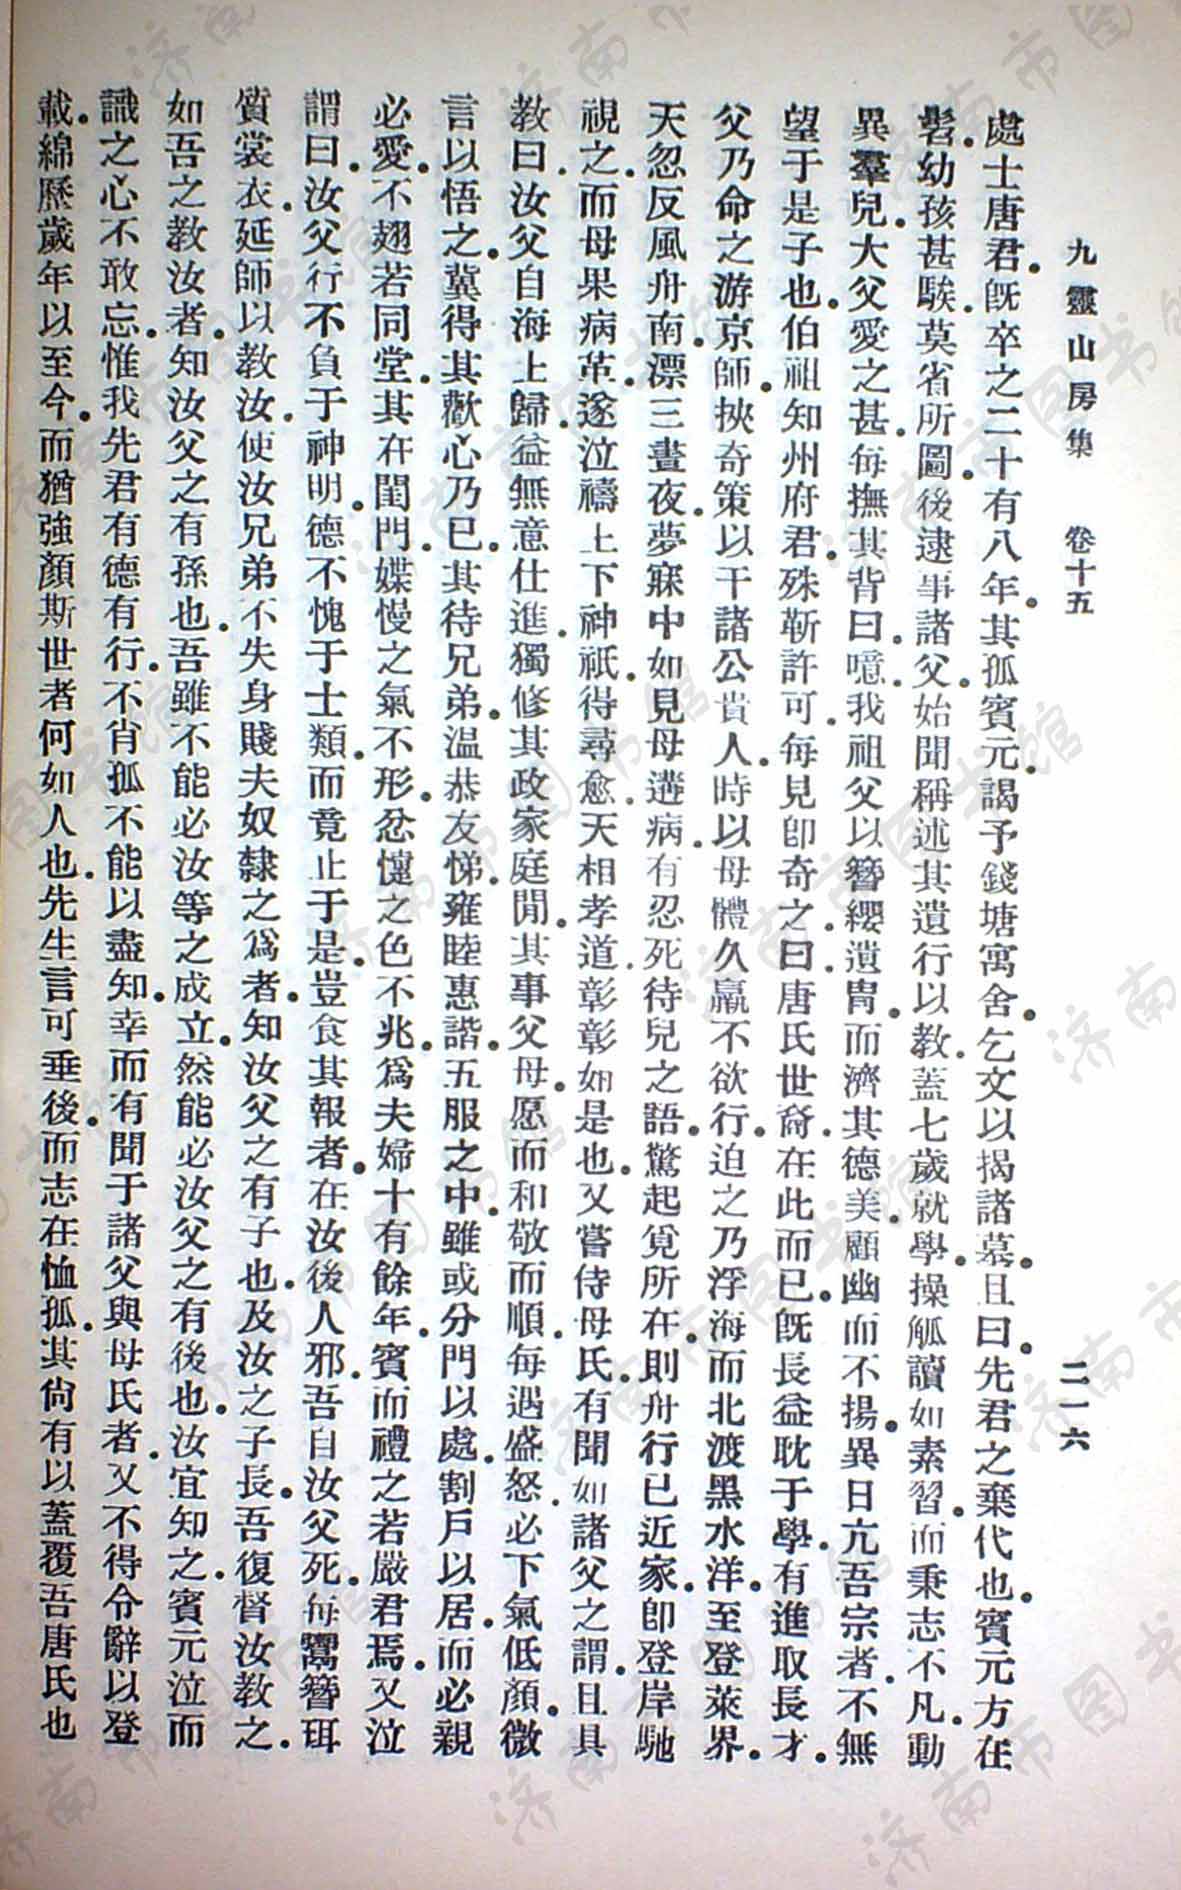 九靈山房集 卷十五 二一六
處士唐君。既卒之二十有八年。其孤賓元。謁予錢塘寓舍。乞文以揭諸墓。且曰。先君之棄代也。賓元方在
髫幼。孩甚騃。莫省所圖。後逮事諸父。始聞稱述其遺行以教。蓋七歲就學。操觚讀如素習。而秉志不凡。動
異羣兒。大父愛之甚。每撫其背曰。噫。我祖父以簪纓遺胄。而濟其德美。顧幽而不揚。異日亢吾宗者。不無
望于是子也。伯祖知州府君。殊靳許可。每見卽奇之曰。唐氏世裔。在此而已。既長益耽于學。有進取長才。
父乃命之游京師。挾奇策以干諸公貴人。時以母體久羸不欲行。迫之乃浮海而北渡黑水洋。至登萊界。
天忽反風舟南漂三晝夜。夢寐中如見母遘病。有忍死待兒之語。驚起覓所在。則舟行已近家。卽登岸馳
視之。而母果病革。遂泣禱上下神祇。得尋愈。天相孝道。彰彰如是也。又嘗侍母氏。有聞如諸父之謂。且具
教曰。汝父自海上歸。益無意仕進。獨修其政家庭閒。其事父母。愿而和敬而順。每遇盛怒。必下氣低顏。微
言以悟之。冀得其歡心乃已。其待兄弟。溫恭友悌。雍睦惠諧。五服之中。雖或分門以處。割戶以居。而必親
必愛。不翅若同堂。其在閨門。媟慢之氣不形。忿懥之色不兆。爲夫婦十有餘年。賓而禮之若嚴君焉。又泣
謂曰。汝父行不負于神明。德不愧于士類。而竟止于是。豈食其報者。在汝後人邪。吾自汝父死。每鬻簪珥
質裳衣。延師以教汝。使汝兄弟不失身賤夫奴隸之爲者。知汝父之有子也。及汝之子長。吾復督汝教之。
如吾之教汝者。知汝父之有孫也。吾雖不能必汝等之成立。然能必汝父之有後也。汝宜知之。賓元泣而
識之心不敢忘。惟我先君有德有行。不肖孤不能以盡知。幸而有聞于諸父與母氏者。又不得令辭以登
載。綿歷歲年以至今。而猶強顏斯世者何如人也。先生言可垂後。而志在恤孤。其尙有以蓋覆吾唐氏也